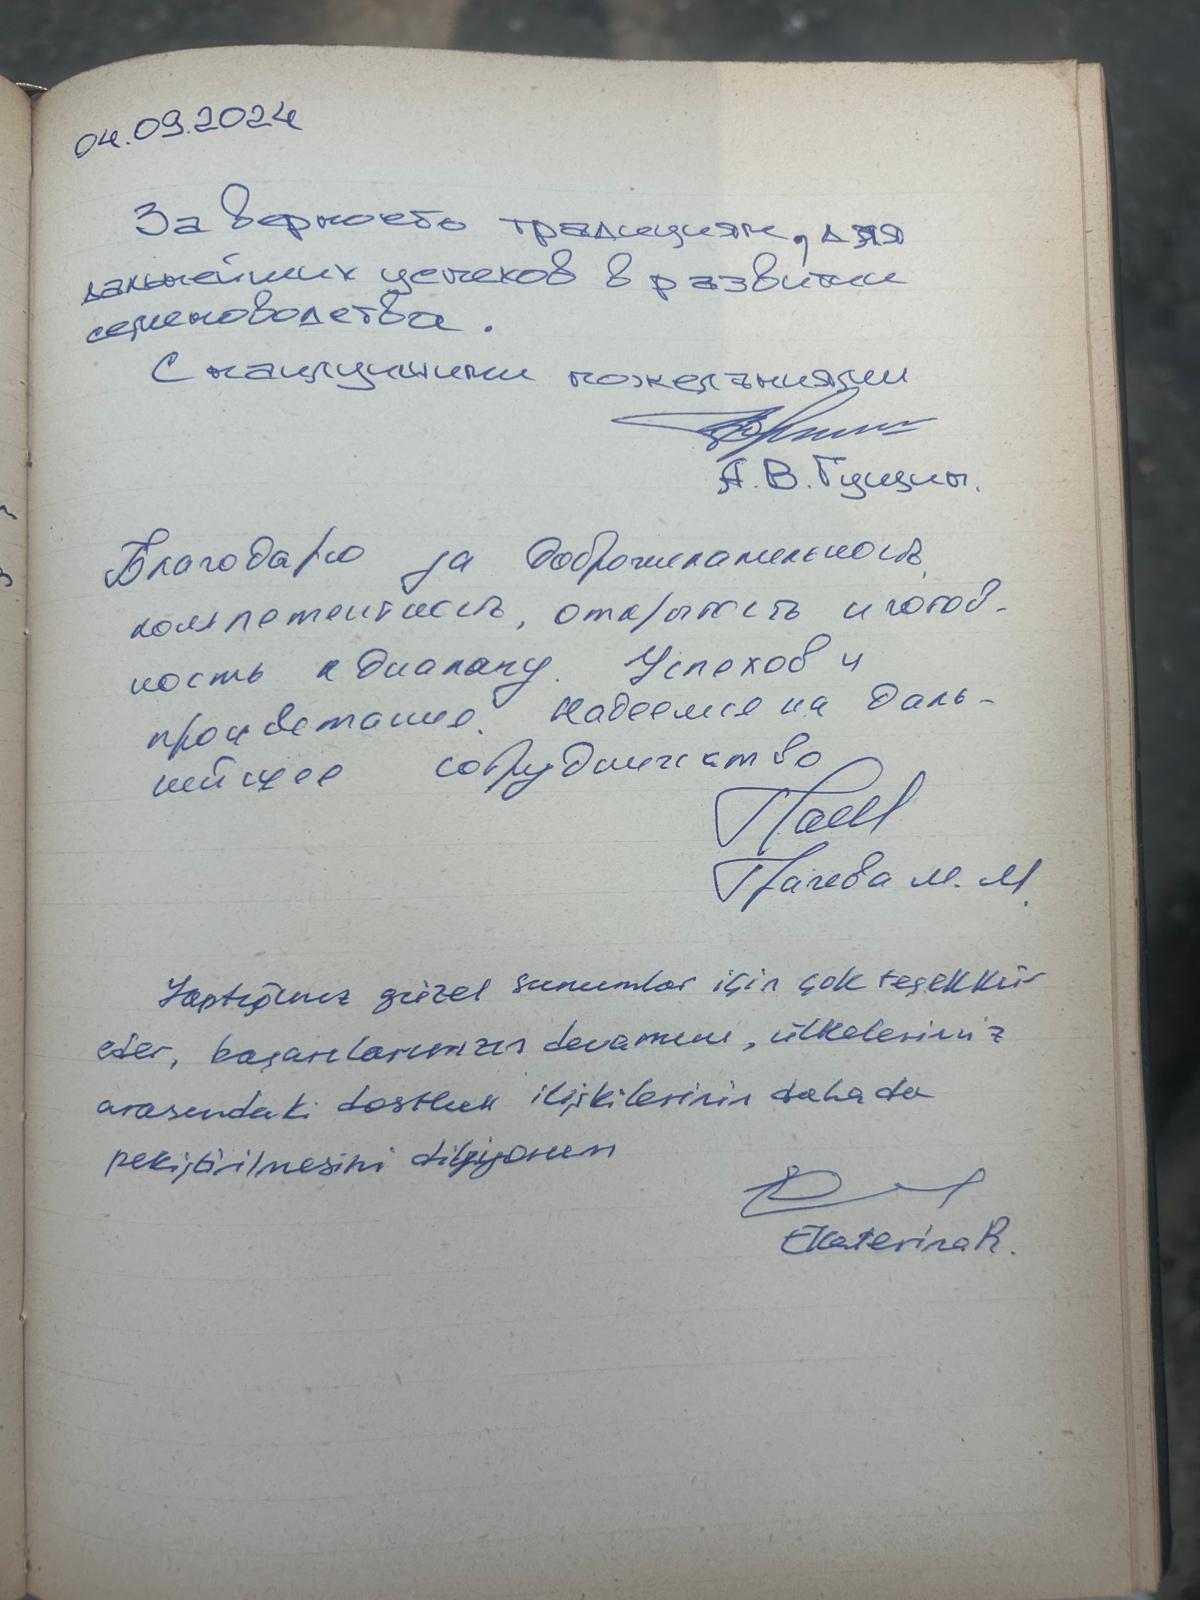 04.09.2024
За верность традициям, для
дальнейших успехов в развитии
семеноводства.
С наилучшими пожеланиями
А.В. Гущин.
Благодарю за доброжелательность,
компетентность, открытость и готов-
ность к диалогу. Успехов и
процветание. Надеемся на даль-
нейшее сотрудничество
М. М.
Yaptığınız güzel sunumlar için çok teşekkür
eder, başarılarınızın devamını, ülkelerimiz
arasındaki dostluk ilişkilerinin daha da
pekiştirilmesini diliyorum
Ekaterina R.